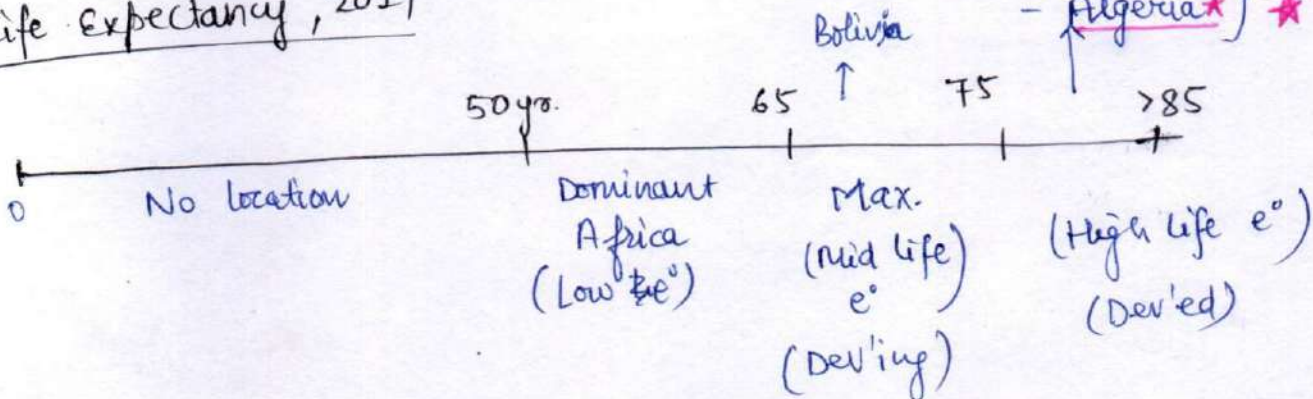 ife Expectancy, 2019
- Algeria★) ★
Bolivia
↑
50 yr.
65
75
>85
0
No location
Dominant
Africa
(Low e°)
Max.
(Mid life)
e°
(Dev'ing)
(High life e°)
(Dev'ed)